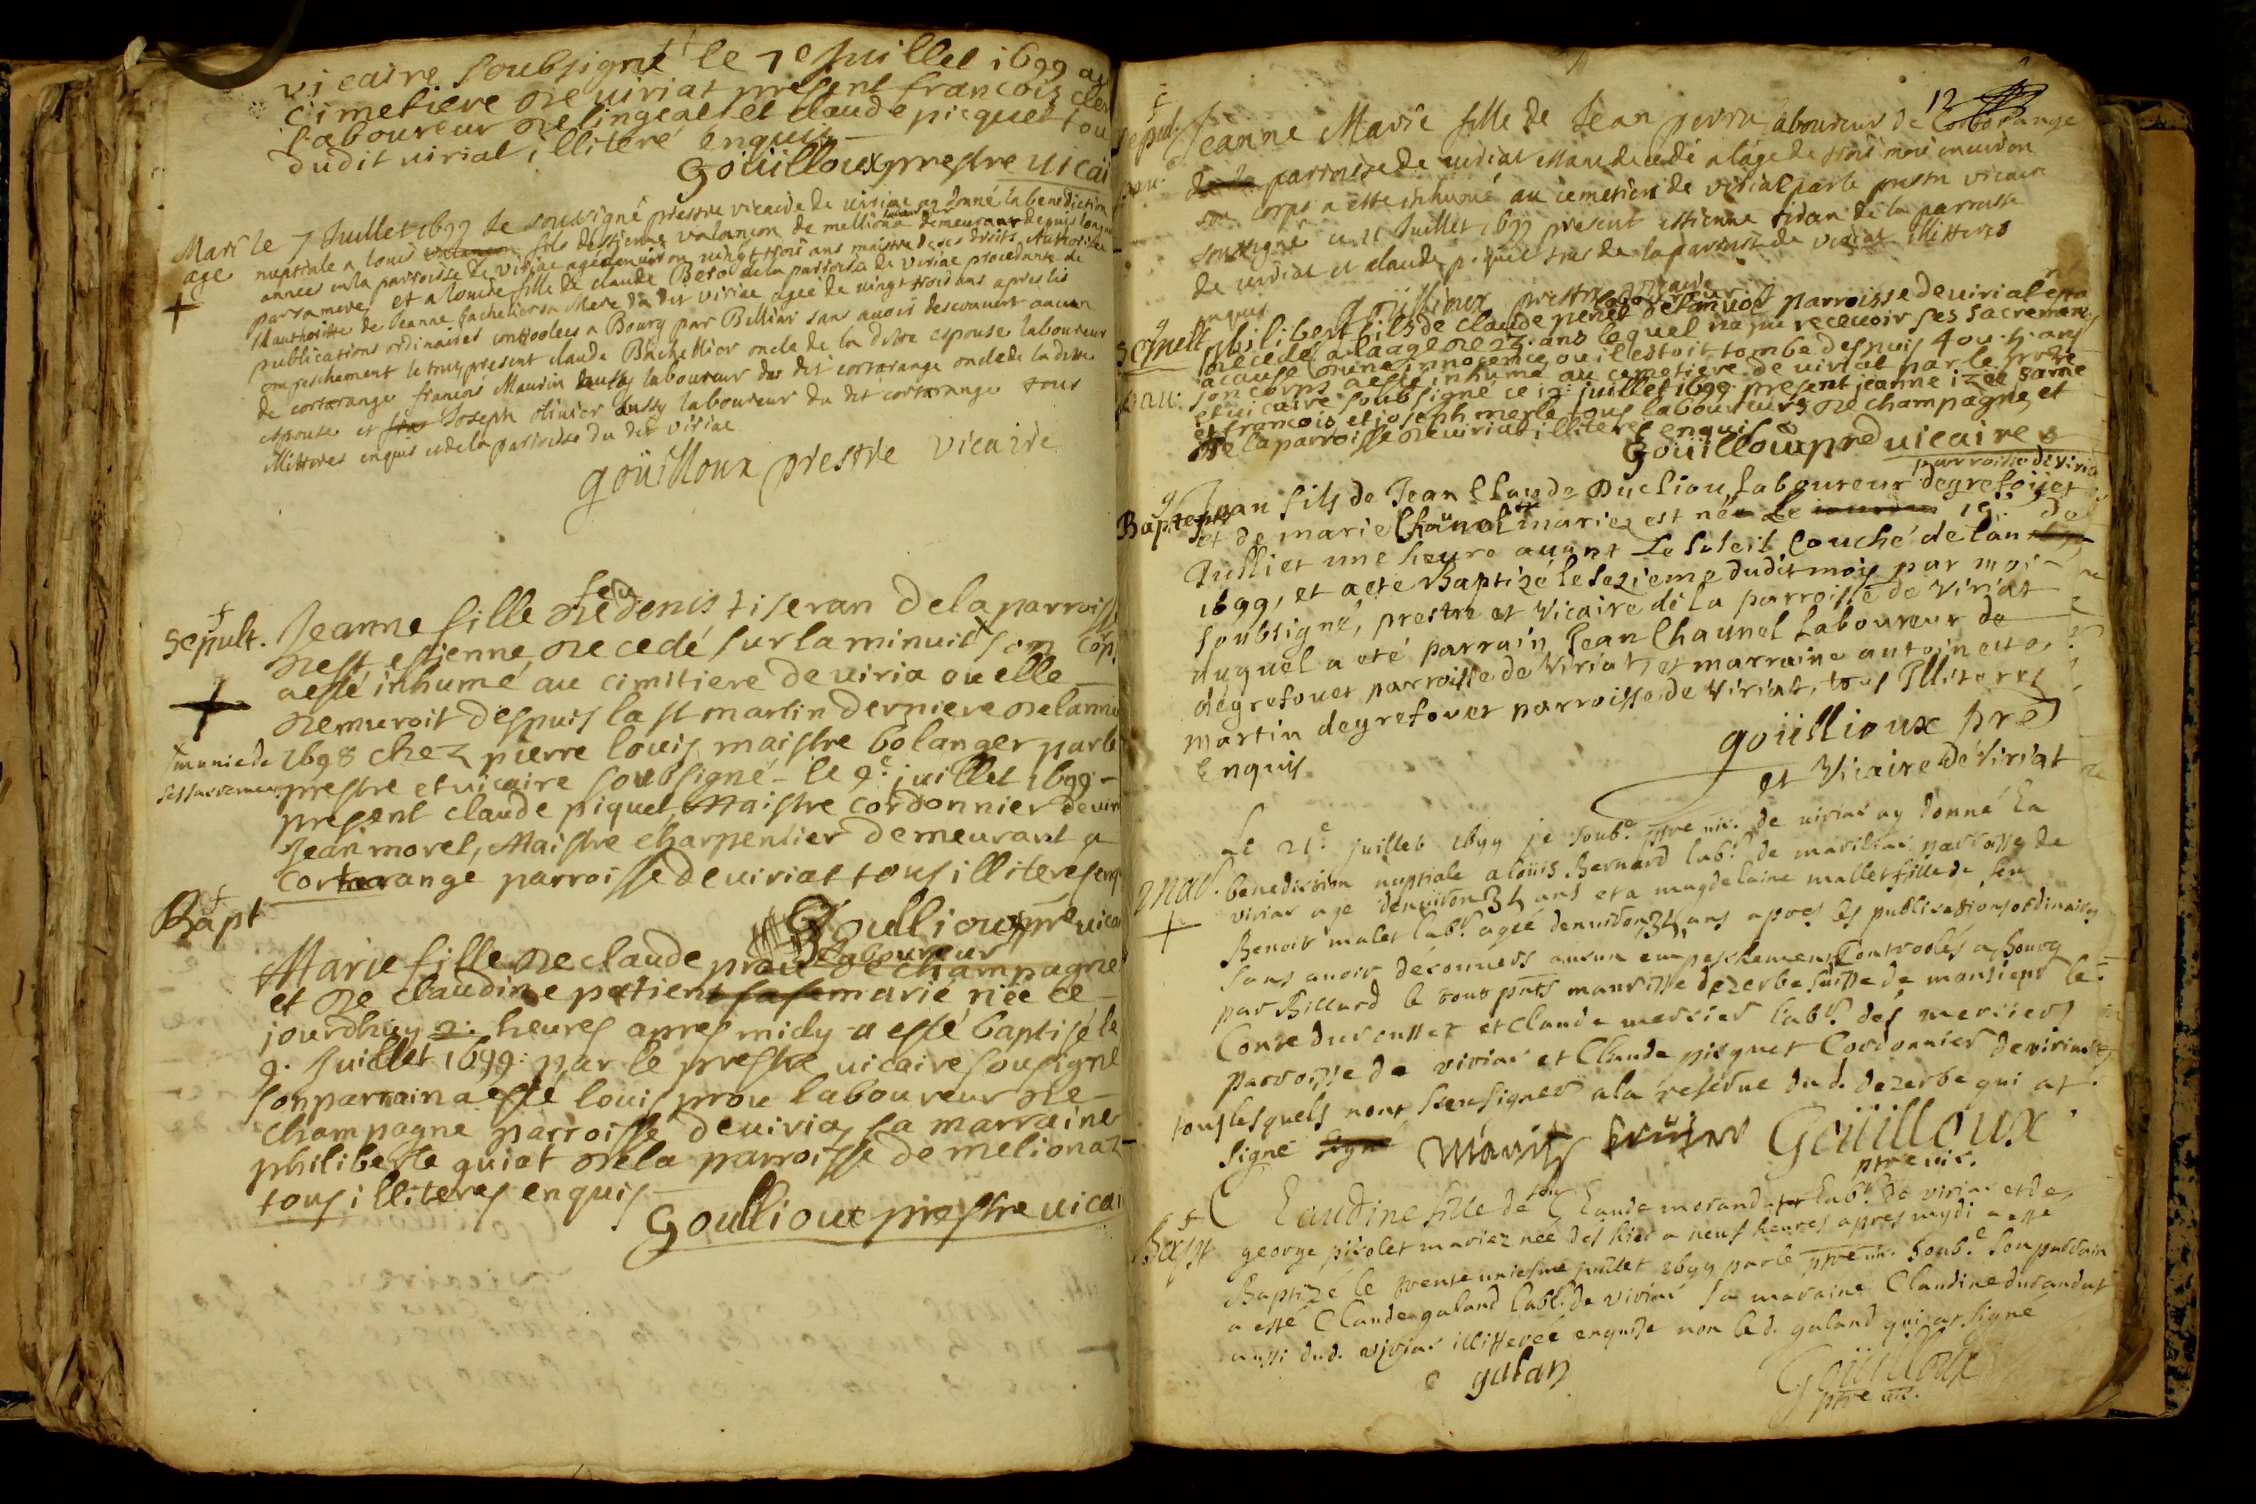 vicaire soubsigné le 7e Juillet 1699 au
cimetiere de uiriat present francois cler
laboureur de lingeat et claude picquet tou
dudit uiriat illiteré enquis
Goüilloux prrestre uicai
Mari le 7 Juillet 1699 Je souvigné prestre vicaire de viriat ay donné la benediction
age nuptiale a louis fils destienne valancon de melliona demeurant depuis longues
laboureur
annees en la parroisse de viriat agé denuiron vingt trois ans maistre de ses droits Authorisée
par sa mere et a louise fille de claude Bero de la parroisse de viriat procedante de
lauthoritte de Jeanne bachellier sa Mere du dit viriat agée de vingt trois ans apres les
publications ordinaires controolees a Bourg par Billiar sans auoir descouuert aucun
empeschement le tous present claude Bachellier oncle de la ditte espouse laboureur
de cortarange francois Maurin aussy laboureur du dit cortarange oncle de la ditte
espouse et Joseph oliuier aussy laboureur du dit cortarange tous
illitteres enquis et de la parroisse du dit viriat
goüilloux prestre vicaire
sepult. Jeanne fille de denis tiseran de la parroisse
feu
de st estienne decedé sur la minuit son corp.
a esté inhumé au cimitiere de uiria ou elle
demuroit despuis la st martin derniere de lannée
munie de 1698 chez pierre louis maistre bolanger par le
ses sacremens prestre et uicaire soubsigné - le 9e juillet 1699 -
present claude piquet Maistre cordonnier de uir
Jean morel, Maistre charpentier demeurant a
cortarange parroisse de uiriat tous illiteres enq
Goullioux pre uica
Bapt
Laboureur
Marie fille de claude prou de champagne
et de claudine patient marié néé ce
jourdhuy 2. heures apres midy a esté baptisé le
9. Juillet 1699: par le prestre uicaire sousigné
son parrain a esté louis prou laboureur de
champagne parroisse de uiria, sa marraine
philiberte guiat de la parroisse de melionaz
tous illiteres enquis
Goullioux prestre uicai
12
sepul. Jeanne Marie fille de Jean perru laboureur de Cortarange
parroisse de uiriat estant decedé a lage de trois mois enuiron
son corps a esté inhumé au cemetiere de viriat par le prestre vicaire
soussigné ce 11 Juillet 1699 present estienne tiran de la parroisse
de uiriat et claude piquet tous de la parroisse de viriat illitteres
enquis goüilloux prestre vicaire
laboureur
sepult philibert fils de claude peret de lanuol parroisse de uiriat esta
decedé a laage de 23. ans lequel na pu receuoir ses sacremens
a cause dune innocence ou il estoit tombé despuis 4 ou 5. ans
son corps a esté inhumé au cemetiere de uiriat par le pretre
et uicaire soubsigné ce 12 juillet 1699 present jeanne izée same
et francois et joseph merle tous laboureurs de champagne, et
de la parroisse de uiriat illiteres enquis
Goüilloux pre uicaire
parroisse de viria
Baptesme Jean fils de Jean Claude Du Cliou laboureur degrefoüet
et de marie Chaünel mariez est né Le 15. de
Julliet une heure auant Le soleil couché de lan
1699, et a eté Baptizé le sezieme dudit mois par moi
soubsigné, prestre et Vicaire de la parroisse de Viriat
duquel a eté parrain Jean Chaunel Laboureur de
degrefouet parroisse de Viriat, et marraine antoinette
martin degrefouet parroisse de Viriat, tous Illiteres
Enquis.
goüillioux pre
et Vicaire de Viriat
Le 21e juillet 1699 je soub.e ptre vic. de viriat ay donné la
2 nov. benediction nuptiale a loüis Bernard lab.r de mavilliat parroisse de
viriat agé denuiron 34 ans et a magdelaine mallet fille de feu
Benoit malet lab.r agée denuiron 34 ans apres les publications ordinaires
sans auoir decouuers aucun empeschement Controolés a bourg
par Billiard le tous pnts maurisse dezerbe suisse de monsieur le
Conte du rousset et Claude mercier lab.r des merciers
parroisse de viriat et Claude picquet Cordonnier de viriat
tous lesquels nont sceu signer a la reserue du d. dezerbe qui at
signé Goüilloux
ptre vic.
Bapt Claudine fille de Claude morandat lab.r de viriat et de
feu
george pirolet mariez née des hier a neuf heures apres mydi a esté
Baptizé le trente uniesme juillet 1699 par le ptre vic. soub.e son parrain
a esté Claude galand lab.r de viriat sa maraine Claudine durandat
aussi dud. viriat illitterée enquise non led. galand qui at signé
galan
Goüilloux
ptre vic.